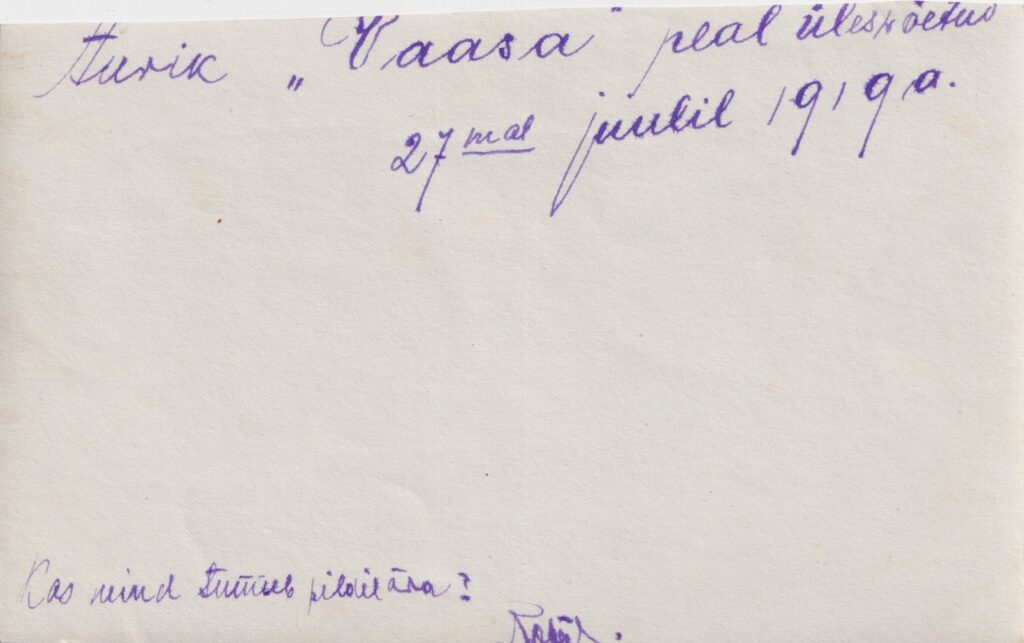 Aurik „Vaasa" peal ülesvõetud
27mal juulil 1919 a.
Kas mind tunneb pildil ära?